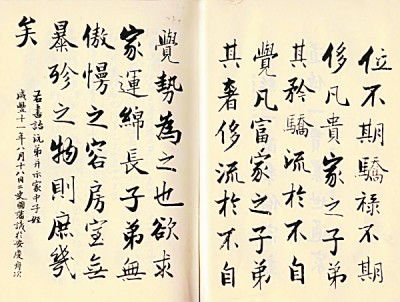 位不期驕祿不期
侈凡貴家之子弟
其矜驕流於不自
覺凡富家之子弟
其奢侈流於不自
覺勢為之也欲求
家運綿長子弟無
傲慢之容房室無
暴殄之物則庶幾
矣
書詒沅弟并示家中子姪
咸豐十一年八月十八日國藩識於安慶舟次